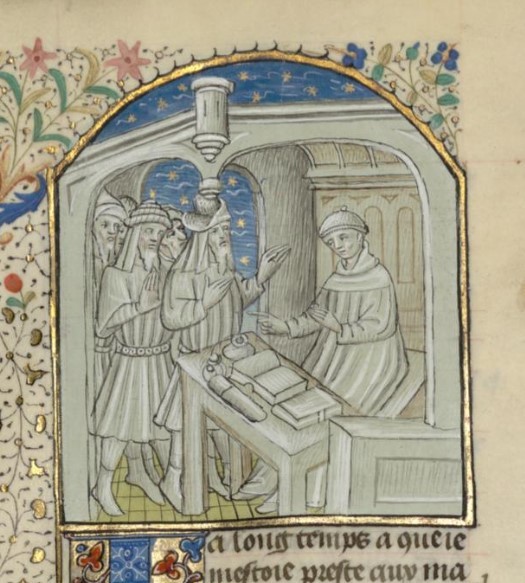 Ia long temps a que ie
mestoie preste aux ma